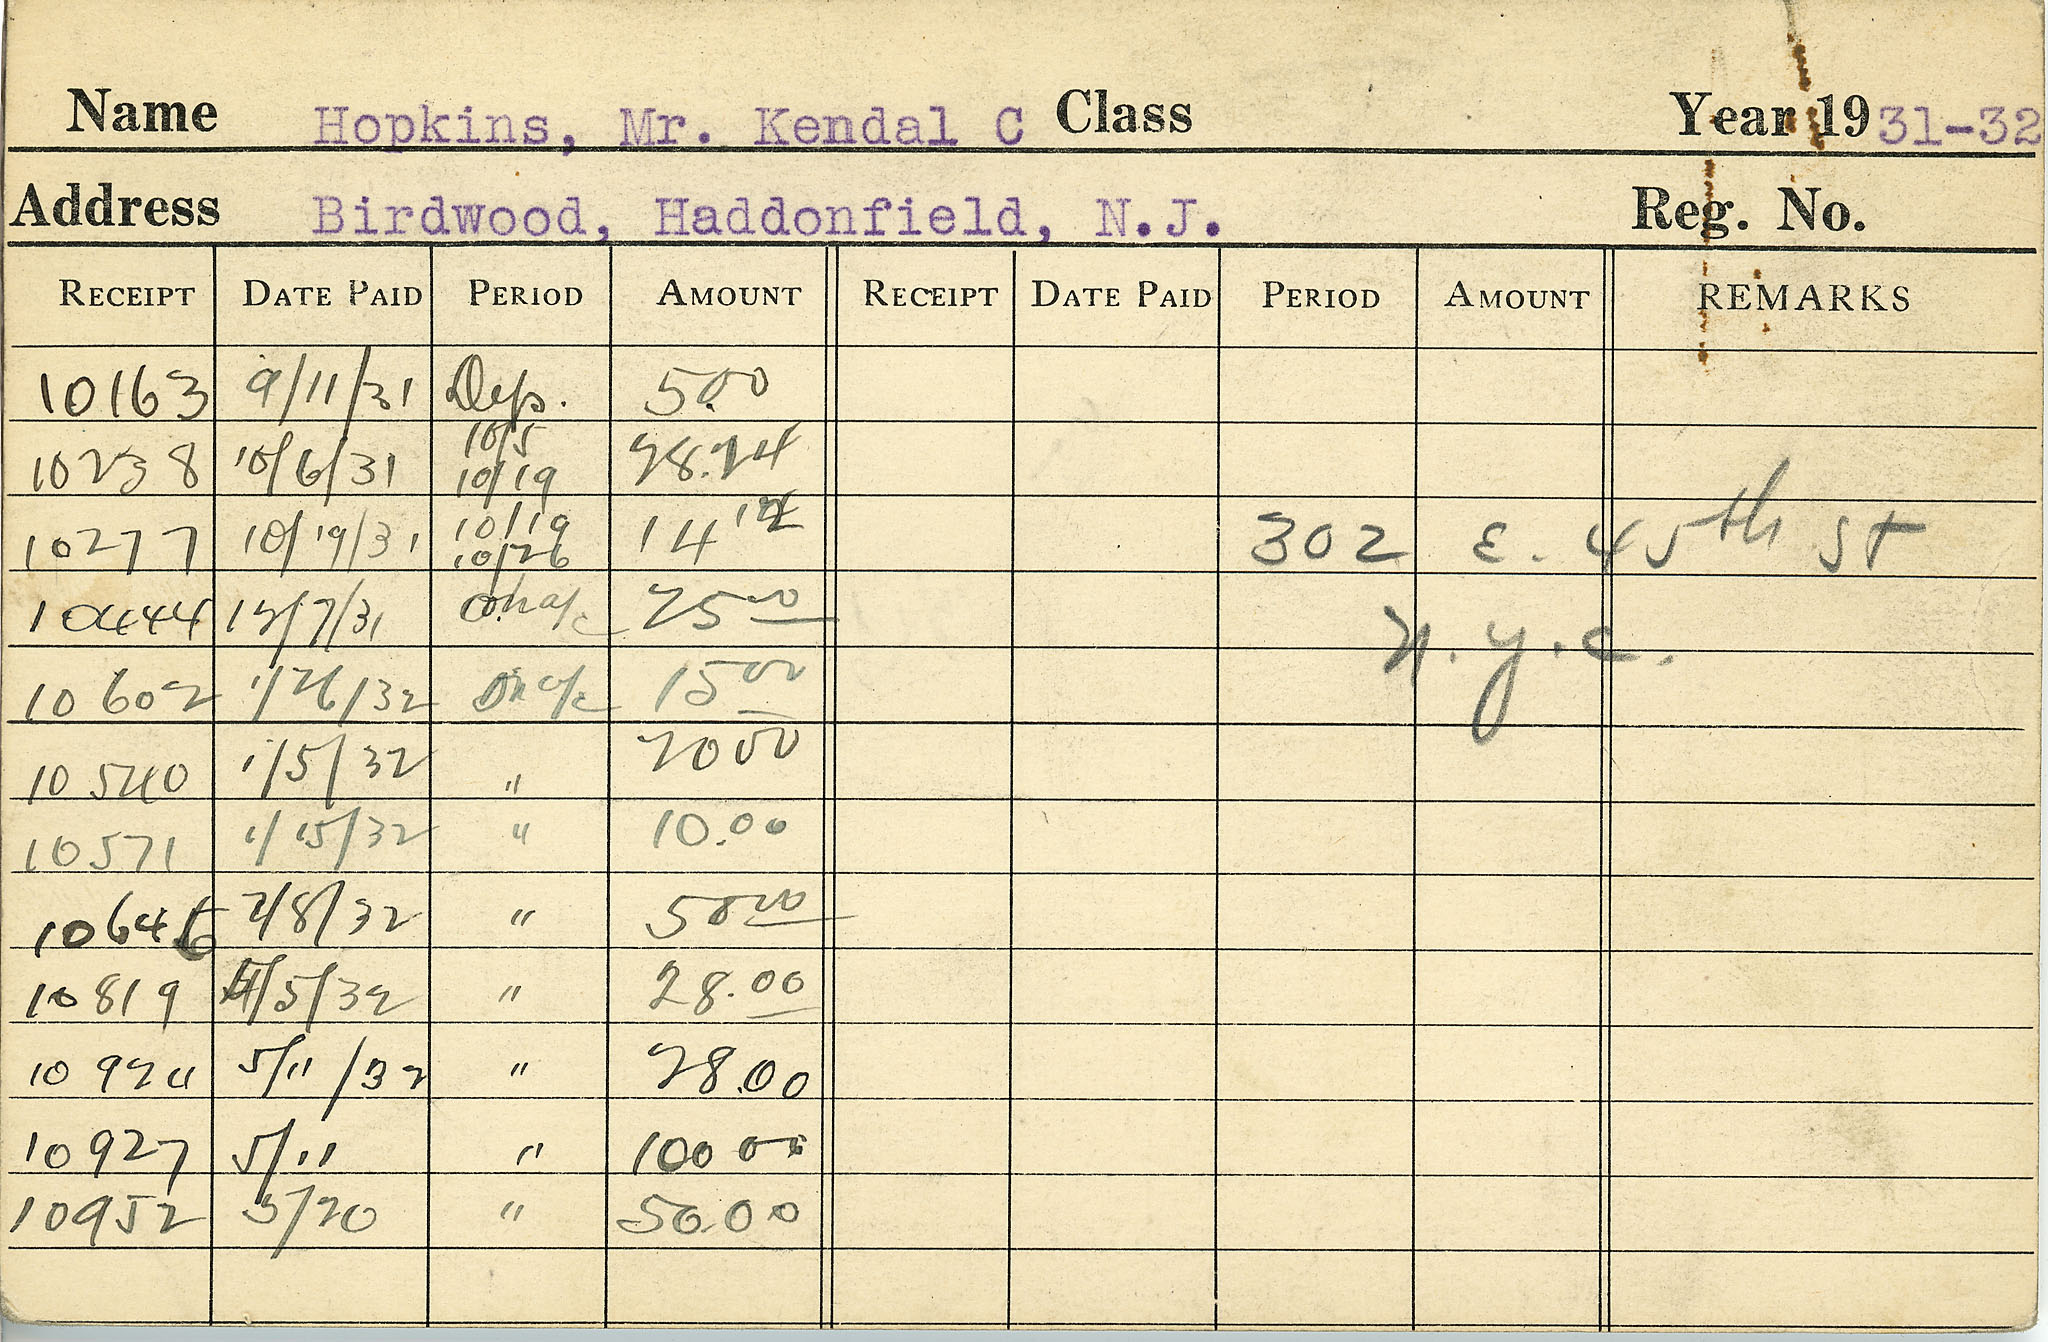 Name Hopkins, Mr. Kendal C Class Year 1931-32
Address Birdwood, Haddonfield, N.J. Reg. No.
RECEIPT DATE PAID PERIOD AMOUNT RECEIPT DATE PAID PERIOD AMOUNT REMARKS
10163 9/11/31 Dep. 5.00
10238 10/6/31 10/5 10/19 28.24
10277 10/19/31 10/19 10/26 14 12
302 E. 45th St
10444 12/7/31 On a/c 25 00
N.Y.C.
10602 1/26/32 On a/c 15 00
10540 1/5/32 " 20 00
10571 1/15/32 " 10.00
10646 2/8/32 " 50 00
10819 4/5/32 " 28.00
10924 5/11/32 " 28.00
10927 5/11 " 100 00
10952 5/20 " 50.00